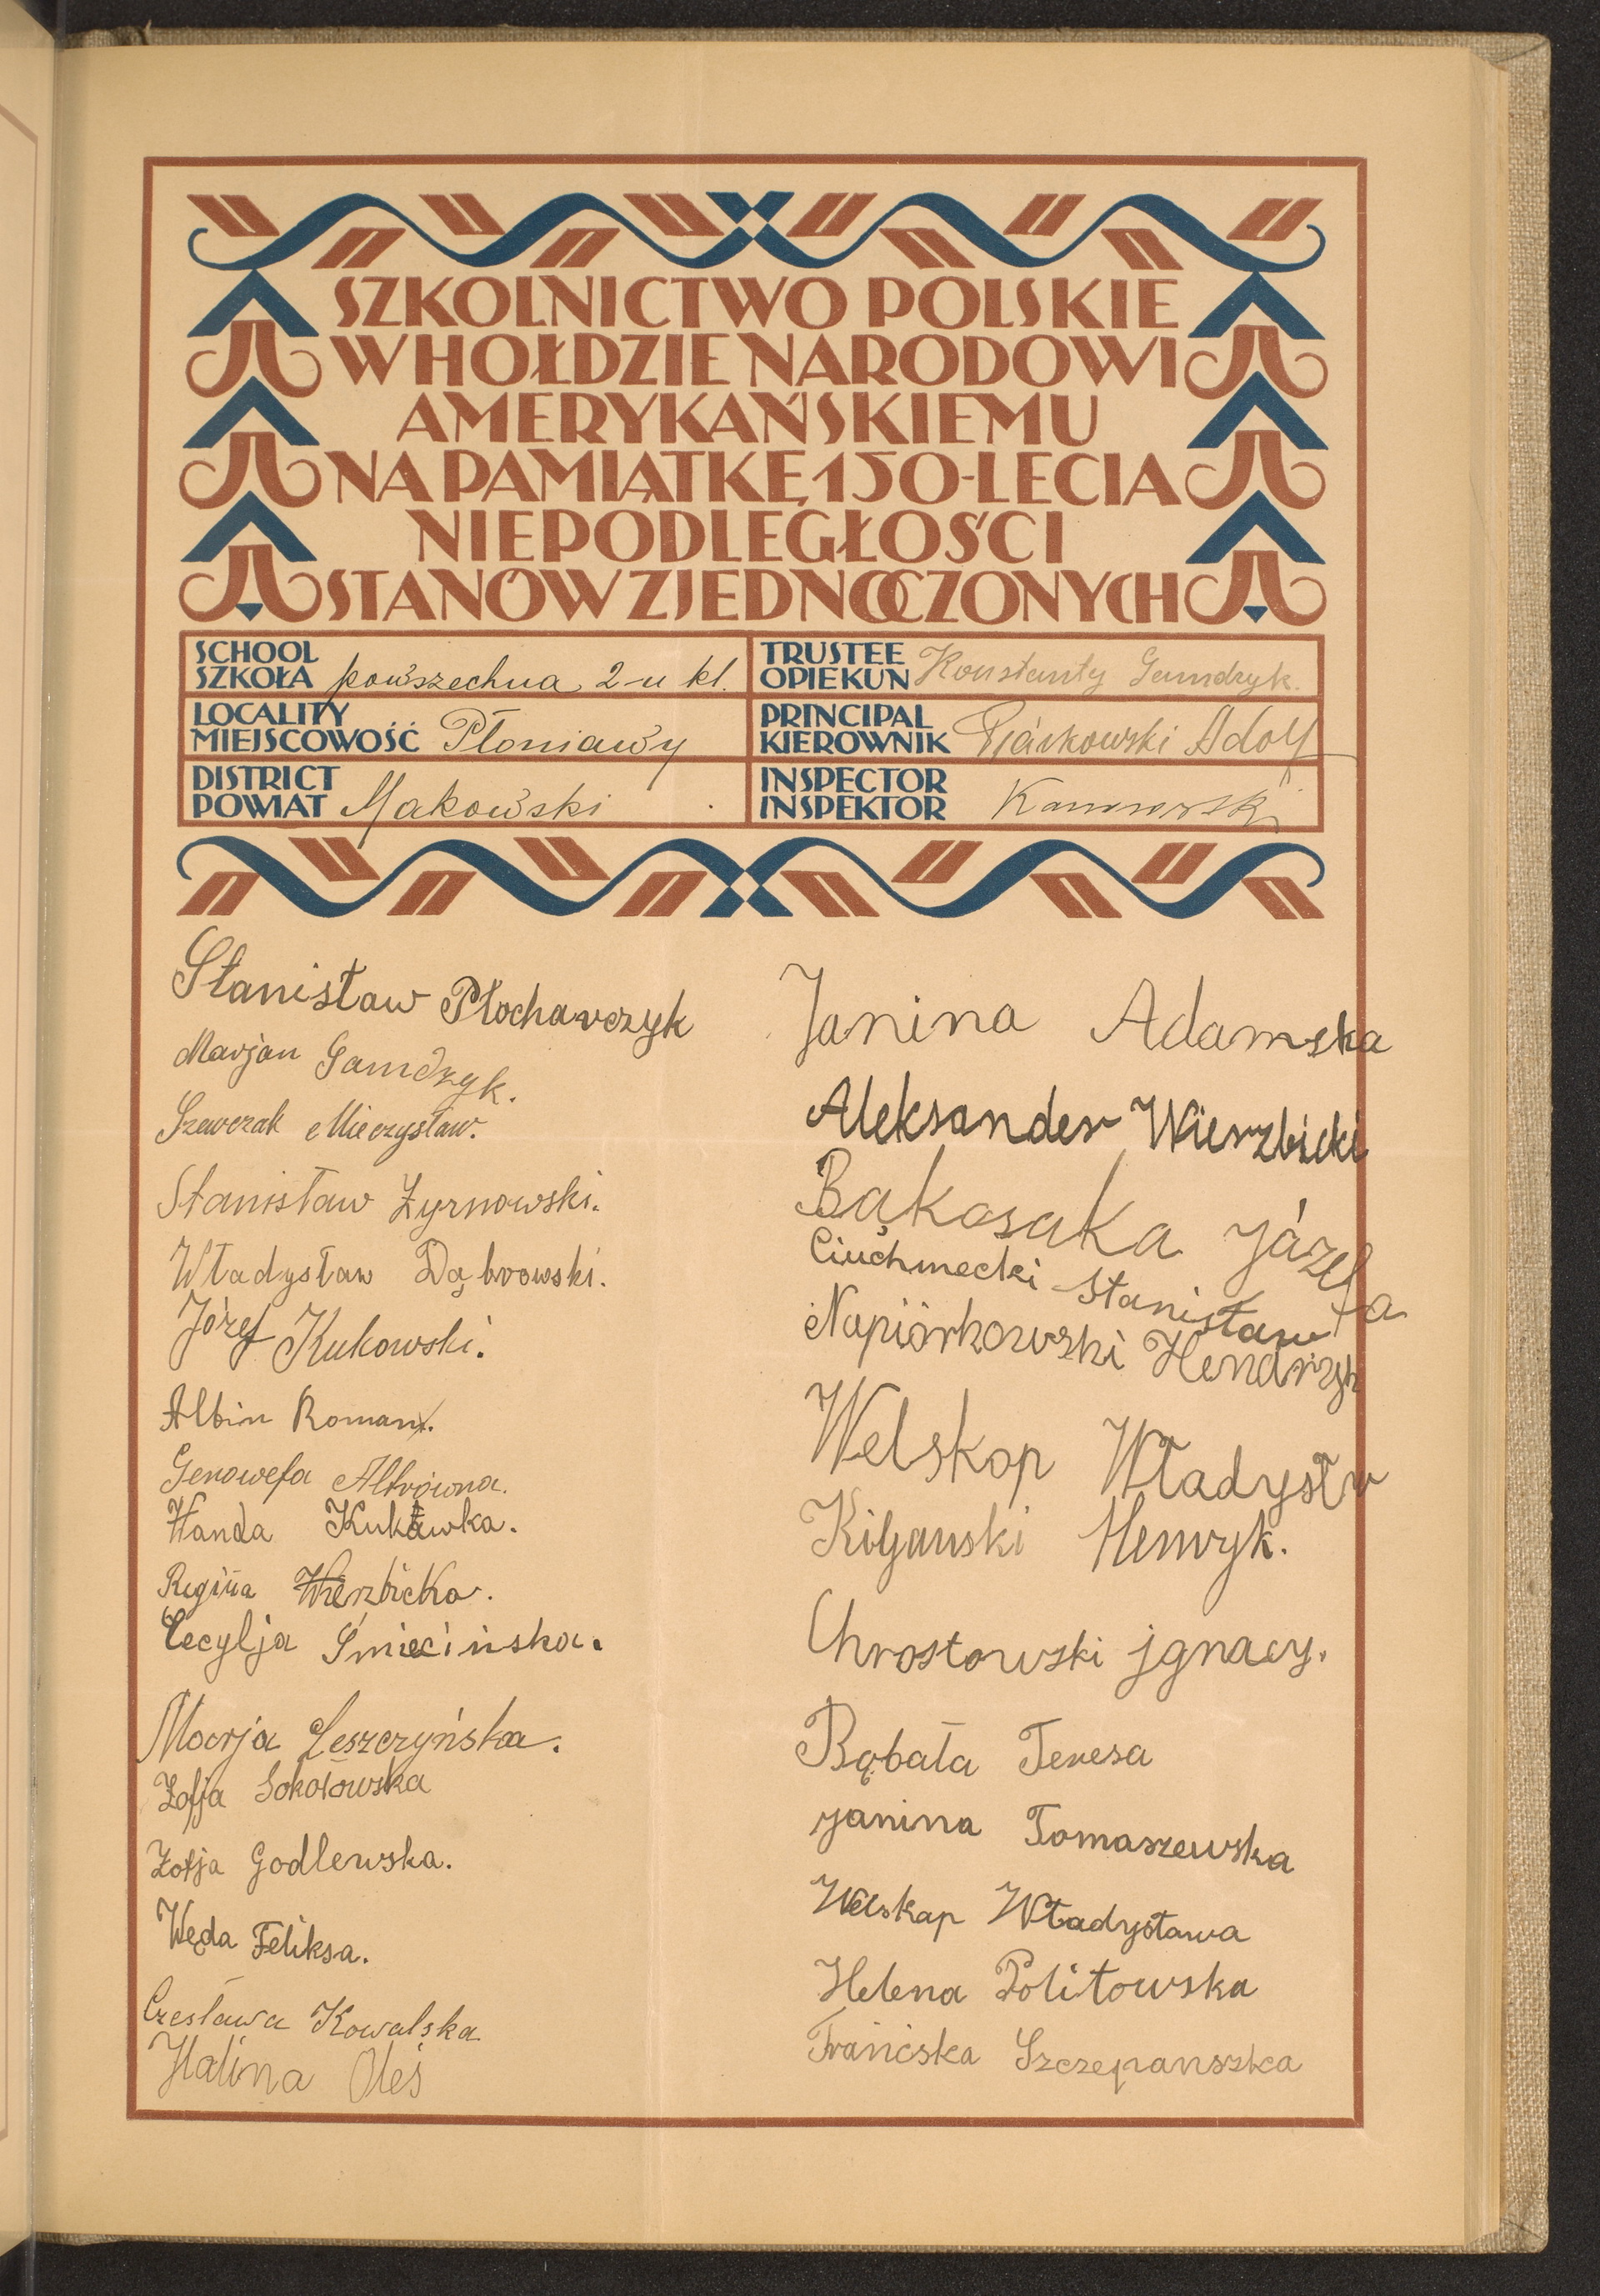 SZKOLNICTWO POLSKIE
W HOŁDZIE NARODOWI
AMERYKAŃSKIEMU
NA PAMIĄTKĘ 150-LECIA
NIEPODLEGŁOŚCI
STANÓW ZJEDNOCZONYCH
SCHOOL
SZKOŁA powszechna 2-u kl.
TRUSTEE
OPIEKUN Konstanty Gamdzyk.
LOCALITY
MIEJSCOWOŚĆ Płoniawy
PRINCIPAL
KIEROWNIK Adolf
DISTRICT
POWIAT Makowski
INSPECTOR
INSPEKTOR
Stanisław Płocharczyk
Marjan Gamdzyk.
Szewczak Mieczysław.
Stanisław Żyrnowski.
Władysław Dąbrowski.
Józef Kukowski.
Albin Roman.
Genowefa Altrówna.
Wanda Kukawka.
Regina Wierzbicka.
Cecylja Śmiecińska.
Marja Leszczyńska.
Zofja Sokołowska
Zofja Godlewska.
Węda Feliksa.
Czesława Kowalska
Halina Oleś
Janina Adamska
Aleksander Wierzbicki
Bąkosaka Józefa
Ciuchmecki Stanisław
Napiórkowski Hendryk
Welskop Władysłw
Kilganski Henryk.
Chrostowski jgnacy.
Bąbała Teresa
Janina Tomaszewska
Welskap Władysława
Helena Politowska
Franciska Szczepanszka